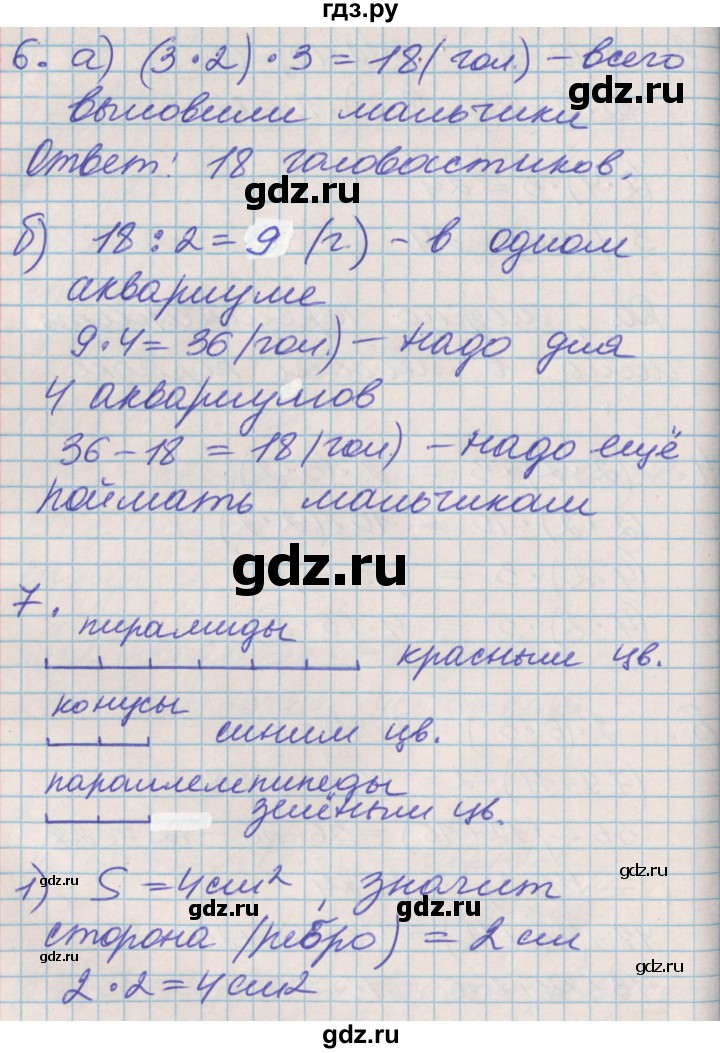 гдз.ру
6. а) (3·2)·3=18(гол.) – всего
gdz.ru
выловили мальчики
Ответ: 18 головастиков.
gdz.ru
б) 18:2=9 (г.) – в одном
аквариуме
9·4=36(гол.) – надо для
4 аквариумов
36–18=18(гол.) – надо ещё
поймать мальчикам
gdz.ru
7.
пирамиды
красным цв.
конусы
синим цв.
параллелепипеды
зелёным цв.
gdz.ru
gdz.ru
1) S=4см², значит
gdz.ru
gdz.ru
сторона (ребро)=2см
gdz.ru
gdz.ru
2·2=4см2
gdz.ru